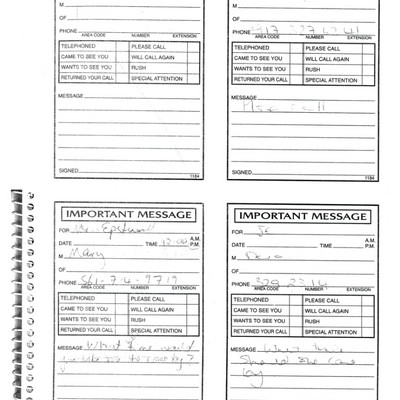 M
OF
PHONE
AREA CODE NUMBER EXTENSION
TELEPHONED PLEASE CALL
CAME TO SEE YOU WILL CALL AGAIN
WANTS TO SEE YOU RUSH
RETURNED YOUR CALL SPECIAL ATTENTION
MESSAGE
SIGNED
1184
M
OF
PHONE
AREA CODE NUMBER EXTENSION
TELEPHONED PLEASE CALL
CAME TO SEE YOU WILL CALL AGAIN
WANTS TO SEE YOU RUSH
RETURNED YOUR CALL SPECIAL ATTENTION
MESSAGE
call
SIGNED
1184
IMPORTANT MESSAGE
FOR
DATE TIME 12:00 A.M. P.M.
M Mary
OF
PHONE
AREA CODE NUMBER EXTENSION
TELEPHONED PLEASE CALL
CAME TO SEE YOU WILL CALL AGAIN
WANTS TO SEE YOU RUSH
RETURNED YOUR CALL SPECIAL ATTENTION
MESSAGE What time would
IMPORTANT MESSAGE
FOR Je
DATE TIME A.M. P.M.
M
OF
PHONE
AREA CODE NUMBER EXTENSION
TELEPHONED PLEASE CALL
CAME TO SEE YOU WILL CALL AGAIN
WANTS TO SEE YOU RUSH
RETURNED YOUR CALL SPECIAL ATTENTION
MESSAGE What time
should she come
by